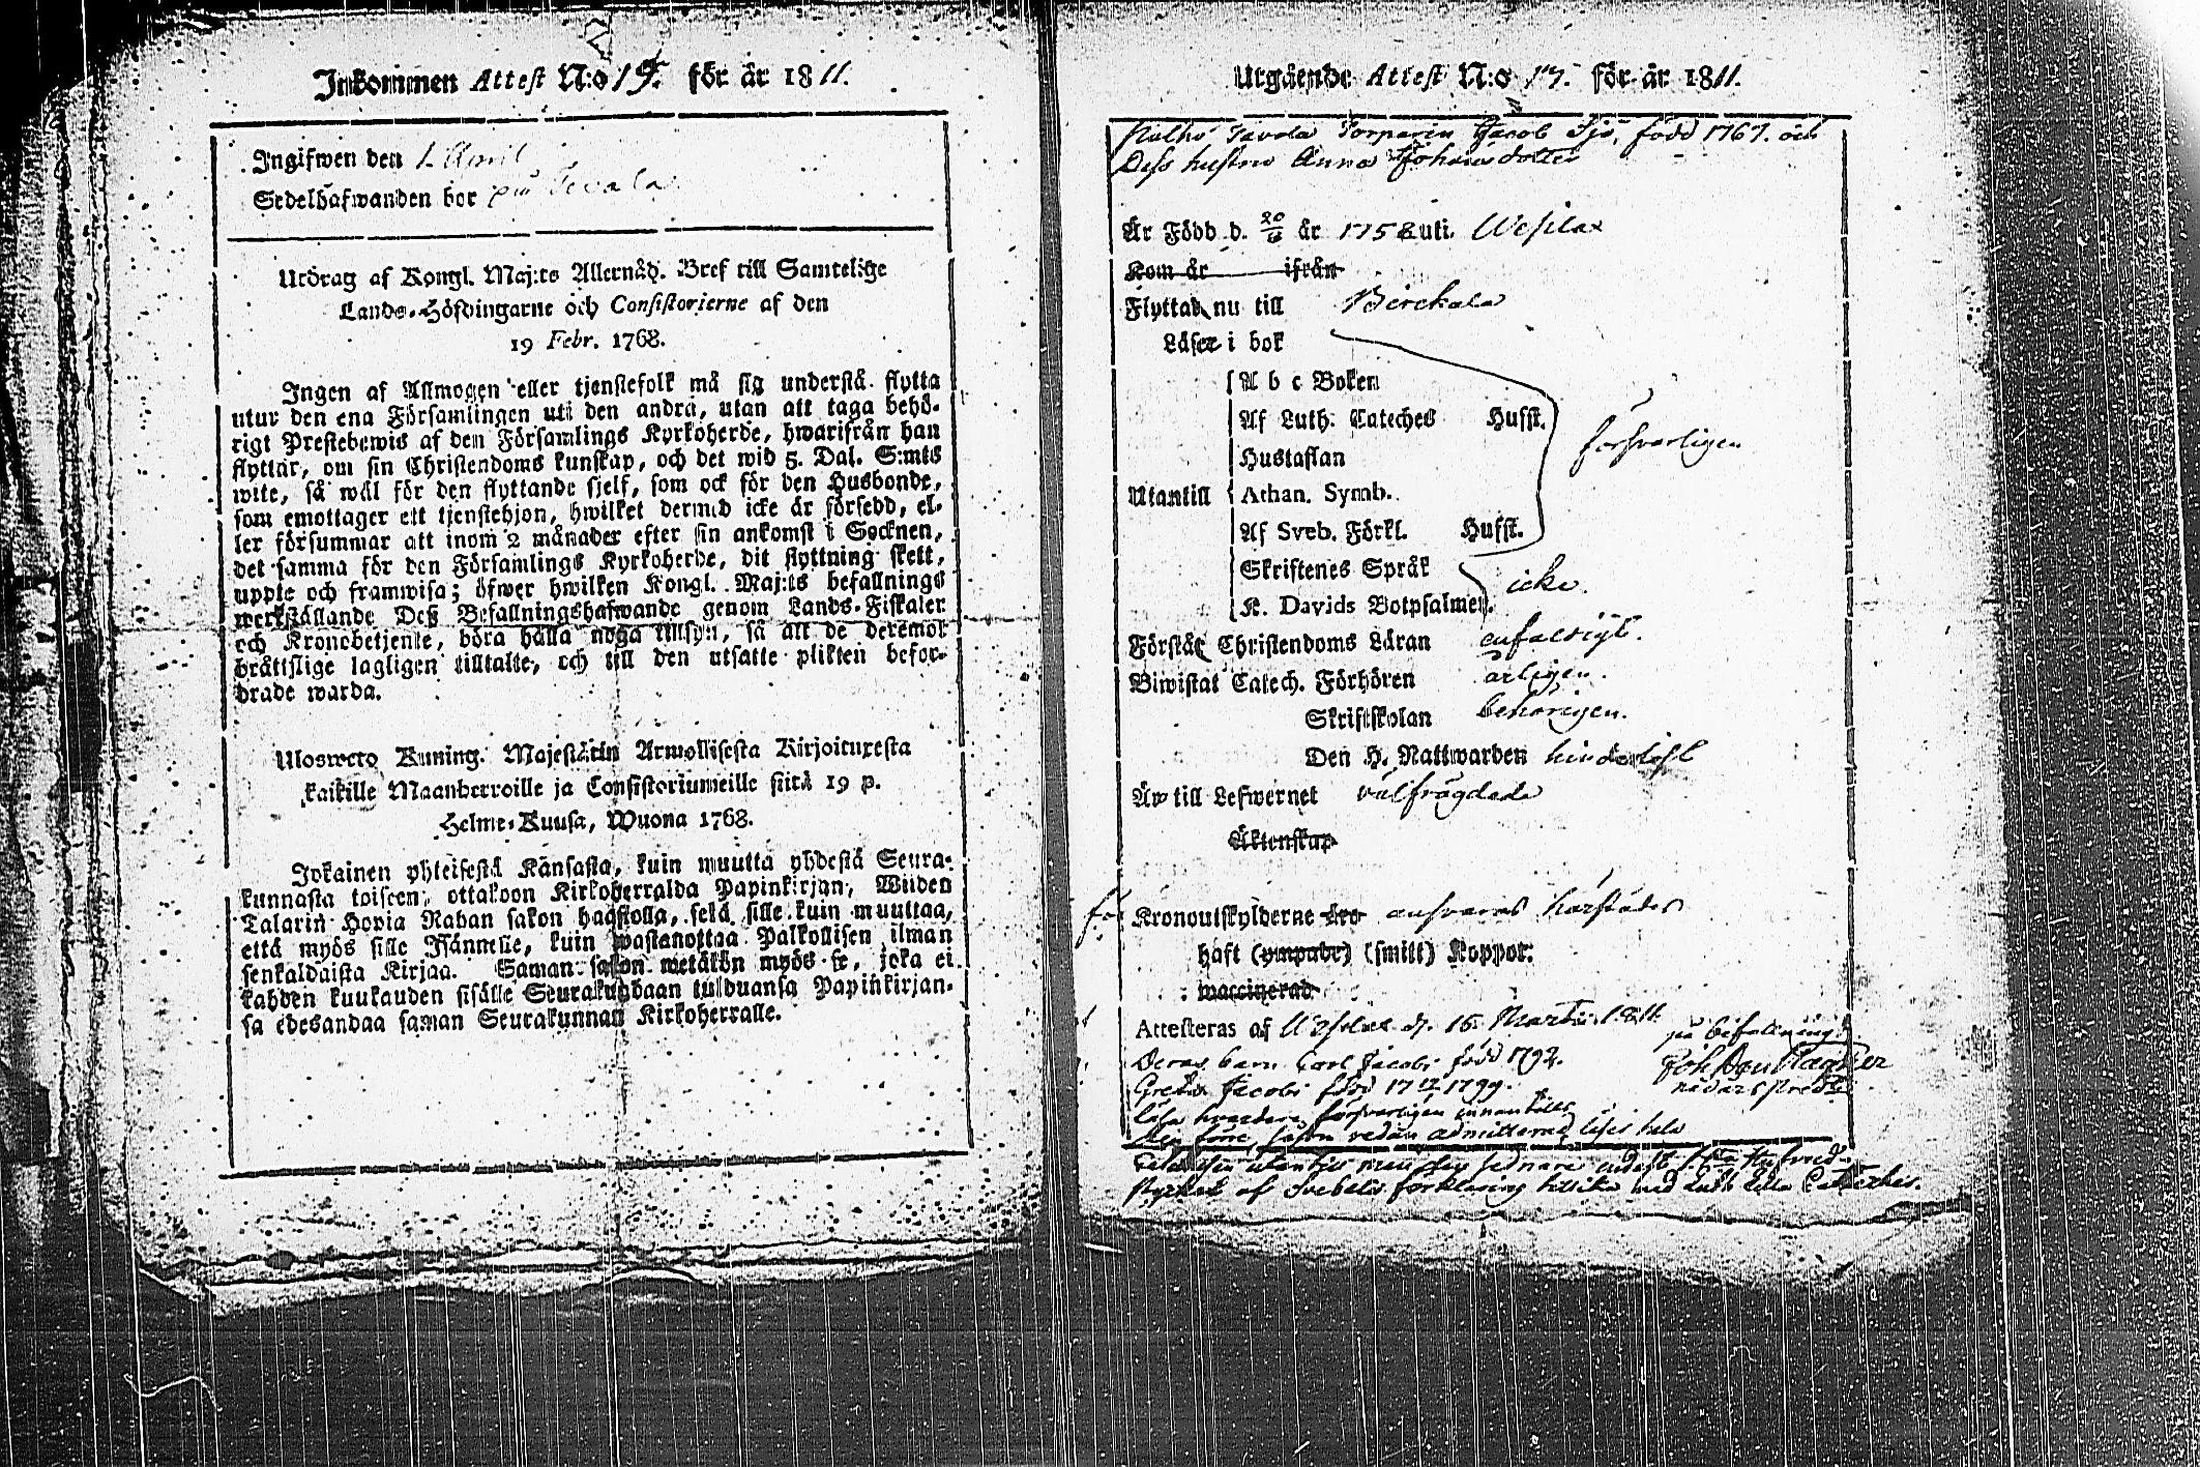 Inkommen Attest N:o 19. för år 1811.
Ingifwen den 1 April
Sedelhafwanden bor på Tevala
Utdrag af Kongl. Maj:ts Allernåd. Bref till Samtelige
Lands-Höfdingarne och Consistorierne af den
19 Febr. 1768.
Ingen af Allmogen eller tjenstefolk må sig understå flytta
utur den ena Församlingen uti den andra, utan att taga behö-
rigt Prestebewis af den Församlings Kyrkoherde, hwarifrån han
flyttar, om sin Christendoms kunskap, och det wid 5. Dal. S:mts
wite, så wäl för den flyttande sjelf, som ock för den Husbonde,
som emottager ett tjenstehjon, hwilket dermed icke är försedd, el-
ler försummar att inom 2 månader efter sin ankomst i Socknen,
det samma för den Församlings Kyrkoherde, dit flyttning skett,
uppte och framwisa; öfwer hwilken Kongl. Maj:ts befallnings
werkställande Deß Befallningshafwande genom Lands-Fiskaler
och Kronobetjente, böra hålla noga tillsyn, så att de deremot
bråttslige lagligen tilltalte, och till den utsatte plikten befor-
drade warda.
Ulosweto Kuning. Majestätin Armollisesta Kirjoituxesta
kaikille Maanherroille ja Consistoriumeille siitä 19 p.
Helme-Kuusa, Wuona 1768.
Jokainen yhteisestä Kansasta, kuin muutta yhdestä Seura-
kunnasta toiseen, ottakoon Kirkoherralda Papinkirjan, Wiiden
Talarin Hopia Rahan sakon haastolla, sekä sille kuin muuttaa,
että myös sille Isännelle, kuin wastanottaa Palkollisen ilman
senkaldaista Kirjaa. Saman sakon wetäkön myös se, joka ei
kahden kuukauden sisälle Seurakundaan tulduansa Papinkirjan-
sa edesandaa saman Seurakunnan Kirkoherralle.
Utgående Attest N:o 17. för år 1811.
Torparen Jacob född 1767. och
Dess hustru Anna Johansdotter
Är Född d. 20/6 år 1758 uti. Wesilax
Kom år ifrån
Flyttar nu till Birckala
Läser i bok
A b c Boken
Af Luth. Cateches Hufst.
Hustaflan
försvarligen
Utantill
Athan. Symb.
Af Sveb. Förkl. Hufst.
Skriftenes Språk
icke.
K. Davids Botpsalmer.
Förstår Christendoms Läran enfaldigt.
Biwistat Catech. Förhören årligen.
Skriftskolan behörigen.
Den H. Nattwarden
Är till Lefwernet välfrägdade
Äktenskap
för Kronoutskylderne äro ansvaras härstädes
haft (ympade) (smitt) Koppor.
waccinerad
Attesteras af Wesilax d. 16. Martii 1811.
på befallning
Deras barn Carl Jacobs född 1792.
Greta Jacobs född 17 12/ 1799.
läsa hvardera försvarligen innantill